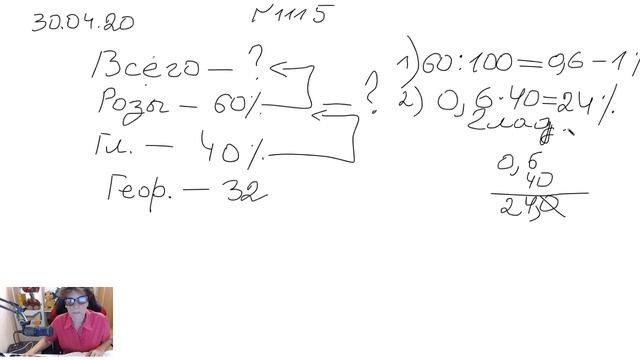 30.04.20
N1115
Всего — ?
Розы — 60% = ?
Гл. — 40%
Геор. — 32
1) 60:100=0,6 — 1%
2) 0,6·40=24%
Глад.
0,6
40
24,0